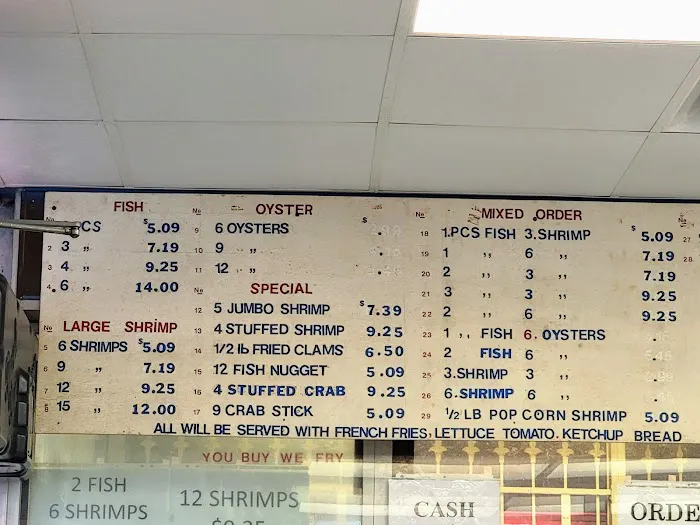 FISH
PCS $5.09
2 3 ,, 7.19
3 4 ,, 9.25
4 6 ,, 14.00
No LARGE SHRIMP
5 6 SHRIMPS $5.09
6 9 ,, 7.19
7 12 ,, 9.25
8 15 ,, 12.00
No OYSTER $
9 6 OYSTERS
10 9 ,,
11 12 ,,
SPECIAL
12 5 JUMBO SHRIMP $7.39
13 4 STUFFED SHRIMP 9.25
14 1/2 lb FRIED CLAMS 6.50
15 12 FISH NUGGET 5.09
16 4 STUFFED CRAB 9.25
17 9 CRAB STICK 5.09
No MIXED ORDER
18 1.PCS FISH 3.SHRIMP $5.09
19 1 ,, 6 ,, 7.19
20 2 ,, 3 ,, 7.19
21 3 ,, 3 ,, 9.25
22 2 ,, 6 ,, 9.25
23 1 ,, FISH 6. OYSTERS
24 2 FISH 6 ,,
25 3.SHRIMP 3 ,,
26 6.SHRIMP 6 ,,
29 1/2 LB POP CORN SHRIMP 5.09
No
27
28
ALL WILL BE SERVED WITH FRENCH FRIES, LETTUCE TOMATO. KETCHUP BREAD
YOU BUY WE FRY
2 FISH
6 SHRIMPS
12 SHRIMPS
$9.25
CASH
ORDE